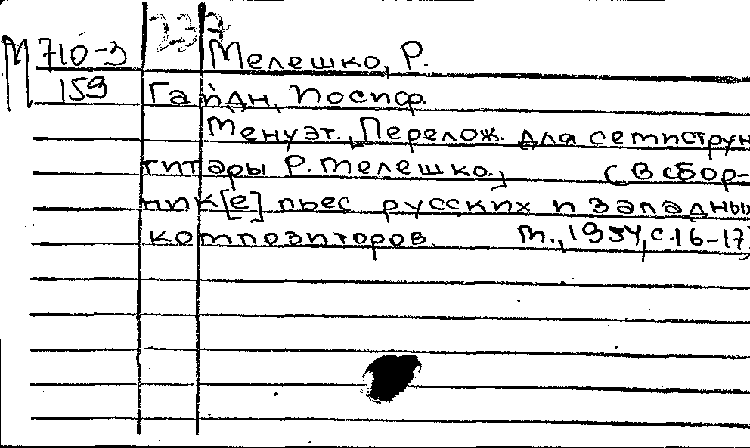 237
М 710-3 Мелешко, Р.
159 Гайдн, Иосиф.
Менуэт. Перелож. для семиструн
гитары Р. Мелешко.) (В сбор-
ник[е] пьес русских и западны
композиторов. М., 1934, с. 16-17)